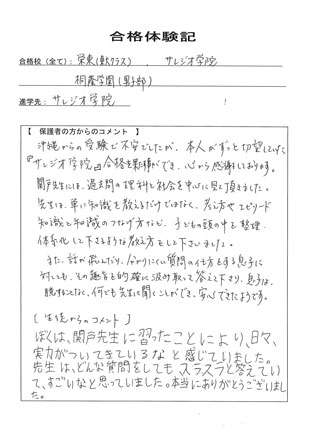 合格体験記
合格校(全て): 栄東(東大クラス)、サレジオ学院
桐蔭学園(男子部)
進学先: サレジオ学院
【 保護者の方からのコメント 】
沖縄からの受験で不安でしたが、本人がずっと切望していた
『サレジオ学院』合格を果たす事ができ、心から感謝しております。
関戸先生には、過去問の理科と社会を中心に見て頂きました。
先生は、単に知識を教えるだけではなく、考え方やエピソード
知識と知識のつなげ方など、子どもの頭の中を整理、
体系化して下さるような教え方をして下さいました。
また、話が飛んだり、分かりにくい質問の仕方をする息子に
対しても、その趣旨を的確に汲み取って答えて下さり、息子は
臆することなく、何でも先生に聞くことができ、安心できたようです。
【 生徒からのコメント 】
ぼくは、関戸先生に習ったことにより、日々、
実力がついてきているなと感じていました。
先生は、どんな質問をしてもスラスラと答えてい
て、すごいなと思っていました。本当にありがとうございまし
た。